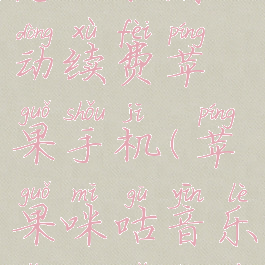 dòng xù fèi píng
动续费苹
guǒ shǒu jī píng
果手机(苹
guǒ mī gū yīn lè
果咪咕音乐